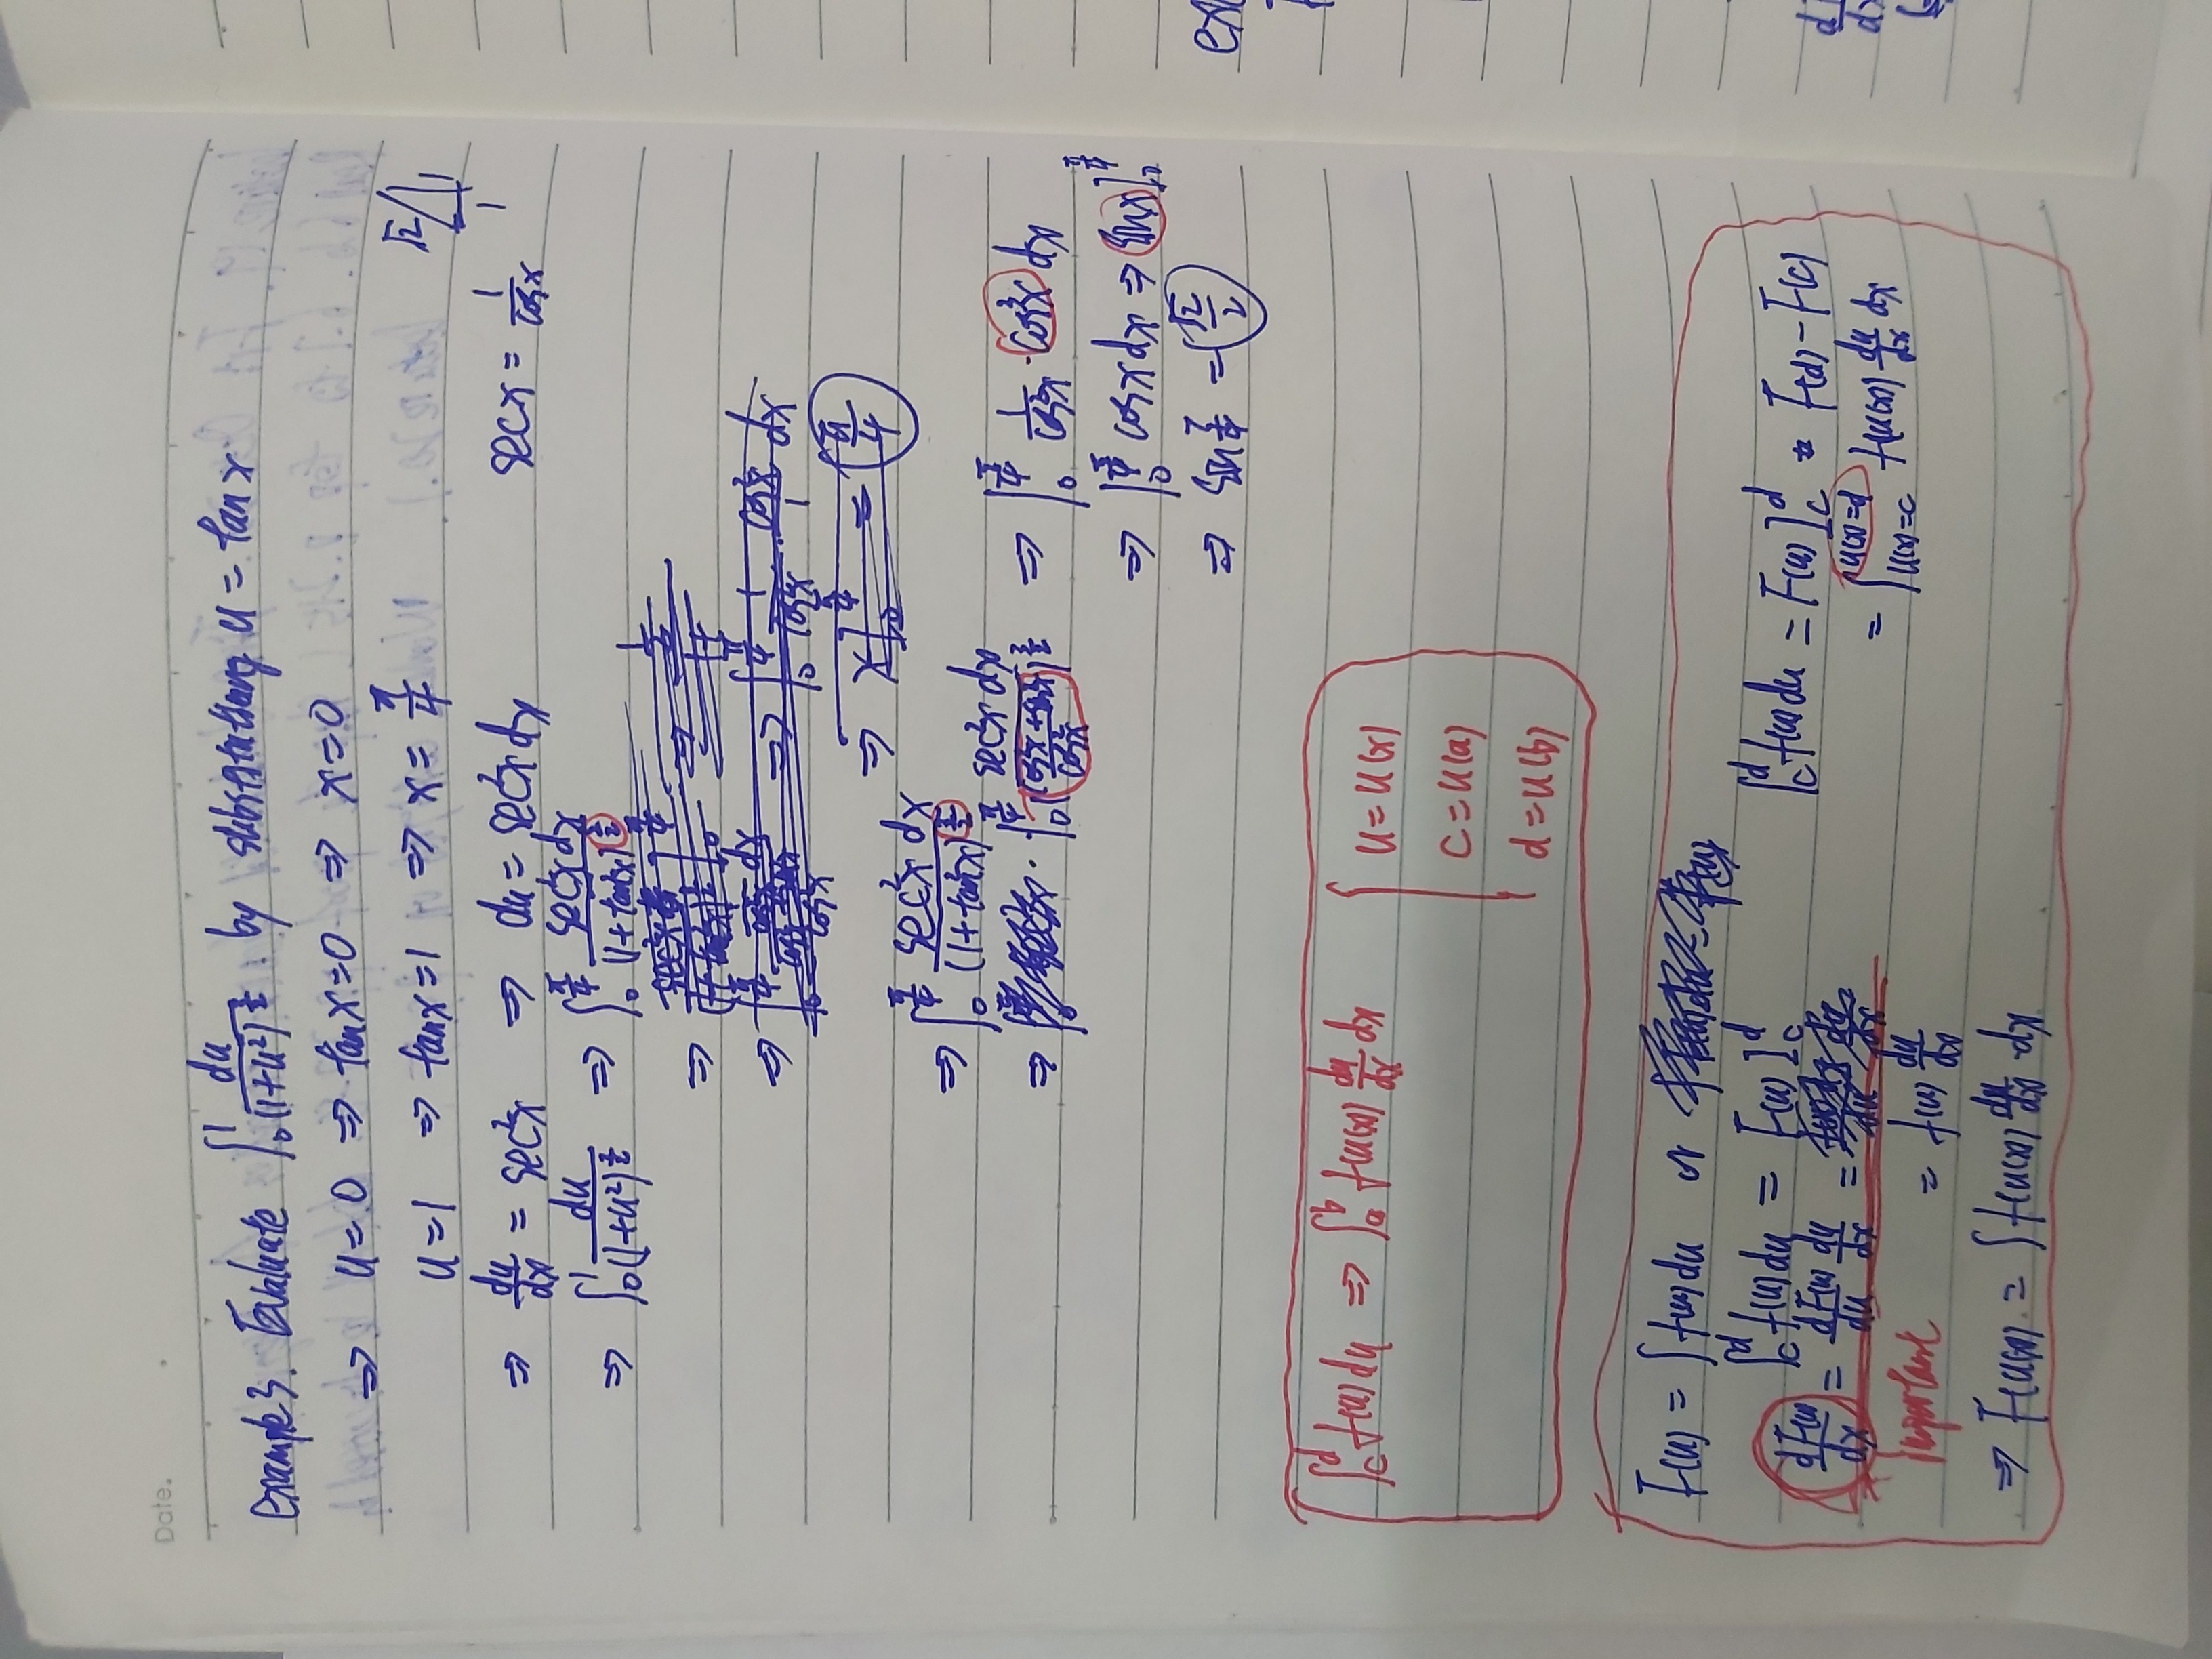 Date.
example 3. Evaluate ∫₀¹ du/(1+u²)^(3/2) by substituting u = tan x
⇒ u = 0 ⇒ tan x = 0 ⇒ x = 0
u = 1 ⇒ tan x = 1 ⇒ x = π/4
√2 1 1
⇒ du/dx = sec²x ⇒ du = sec²x dx sec x = 1/cos x
⇒ ∫₀¹ du/(1+u²)^(3/2) ⇒ ∫₀^(π/4) sec²x dx/(1+tan²x)^(3/2)
⇒ ∫₀^(π/4) 1/cos²x · cos²x/1 dx
⇒ x]₀^(π/4) = π/4
⇒ ∫₀^(π/4) sec²x dx/(1+tan²x)^(3/2)
⇒ ∫₀^(π/4) sec²x dx/((cos²x+sin²x)/cos²x)^(3/2) ⇒ ∫₀^(π/4) 1/cos²x · cos³x dx
⇒ ∫₀^(π/4) cos x dx ⇒ sin x]₀^(π/4)
⇒ sin π/4 = √2/2
∫_c^d f(u) du ⇒ ∫_a^b f(u(x)) du/dx dx { u = u(x)
c = u(a)
d = u(b)
F(u) = ∫ f(u) du or
∫_c^d f(u) du = F(u)]_c^d
dF(u)/dx = dF(u)/du du/dx =
Important = f(u) du/dx
⇒ F(u(x)) = ∫ f(u(x)) du/dx · dx
∫_c^d f(u) du = F(u)]_c^d = F(d) - F(c)
= ∫_(u(x)=c)^(u(x)=d) f(u(x)) du/dx dx